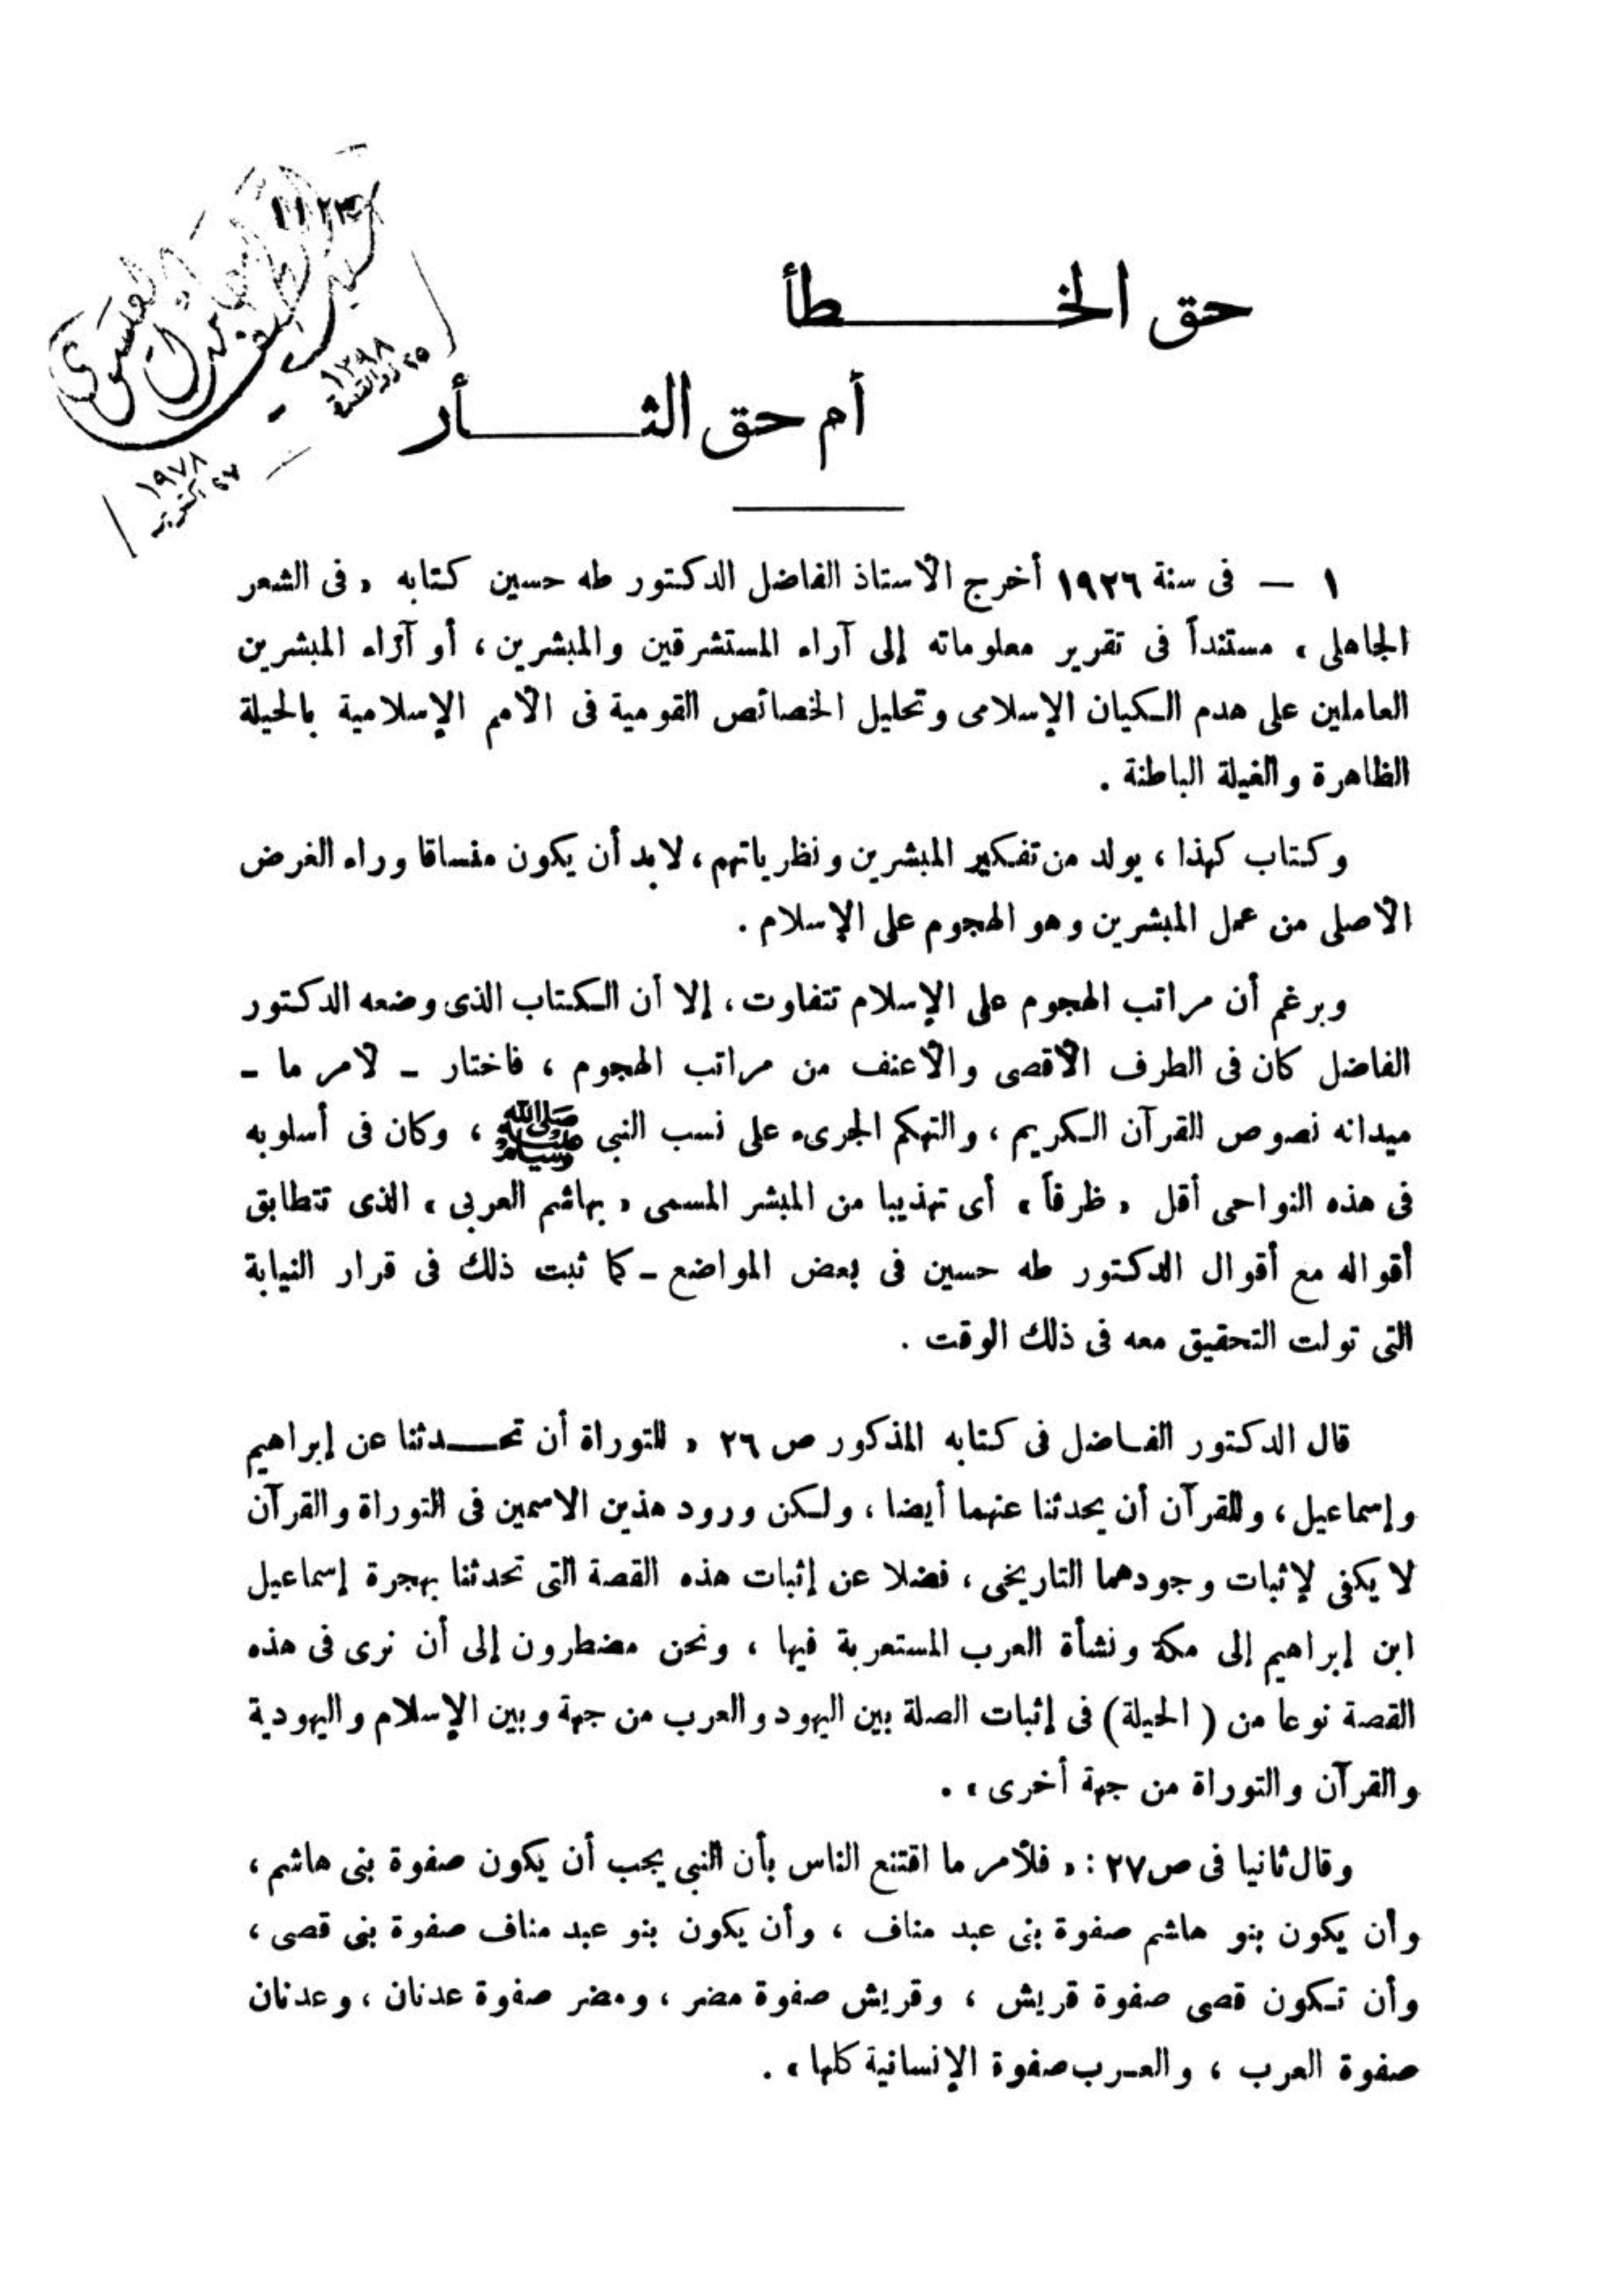 ١١٢٣
١٣٩٨
٢٥ ذوالقعدة
١٩٧٨
٢٧ اكتوبر
حق الخطأ
أم حق الثأر
١ — فى سنة ١٩٢٦ أخرج الأستاذ الفاضل الدكتور طه حسين كتابه « فى الشعر
الجاهلى » مستنداً فى تقرير معلوماته إلى آراء المستشرقين والمبشرين ، أو آراء المبشرين
العاملين على هدم الكيان الإسلامى وتحليل الخصائص القومية فى الأمم الإسلامية بالحيلة
الظاهرة والغيلة الباطنة .
وكتاب كهذا ، يولد من تفكير المبشرين ونظرياتهم ، لابد أن يكون منساقا وراء الغرض
الأصلى من عمل المبشرين وهو الهجوم على الإسلام .
وبرغم أن مراتب الهجوم على الإسلام تتفاوت ، إلا أن الكتاب الذى وضعه الدكتور
الفاضل كان فى الطرف الأقصى والأعنف من مراتب الهجوم ، فاختار – لأمر ما –
ميدانه نصوص القرآن الكريم ، والتهكم الجرىء على نسب النبى ﷺ ، وكان فى أسلوبه
فى هذه النواحى أقل « ظرفاً » أى تهذيبا من المبشر المسمى « بهاشم العربى » الذى تتطابق
أقواله مع أقوال الدكتور طه حسين فى بعض المواضع – كما ثبت ذلك فى قرار النيابة
التى تولت التحقيق معه فى ذلك الوقت .
قال الدكتور الفاضل فى كتابه المذكور ص ٢٦ « للتوراة أن تحدثنا عن إبراهيم
وإسماعيل ، وللقرآن أن يحدثنا عنهما أيضا ، ولكن ورود هذين الاسمين فى التوراة والقرآن
لا يكفى لإثبات وجودهما التاريخى ، فضلا عن إثبات هذه القصة التى تحدثنا بهجرة إسماعيل
ابن إبراهيم إلى مكة ونشأة العرب المستعربة فيها ، ونحن مضطرون إلى أن نرى فى هذه
القصة نوعا من ( الحيلة ) فى إثبات الصلة بين اليهود والعرب من جهة وبين الإسلام واليهودية
والقرآن والتوراة من جهة أخرى » .
وقال ثانيا فى ص ٢٧ : « فلأمر ما اقتنع الناس بأن النبى يجب أن يكون صفوة بنى هاشم ،
وأن يكون بنو هاشم صفوة بنى عبد مناف ، وأن يكون بنو عبد مناف صفوة بنى قصى ،
وأن تكون قصى صفوة قريش ، وقريش صفوة مضر ، ومضر صفوة عدنان ، وعدنان
صفوة العرب ، والعرب صفوة الإنسانية كلها » .